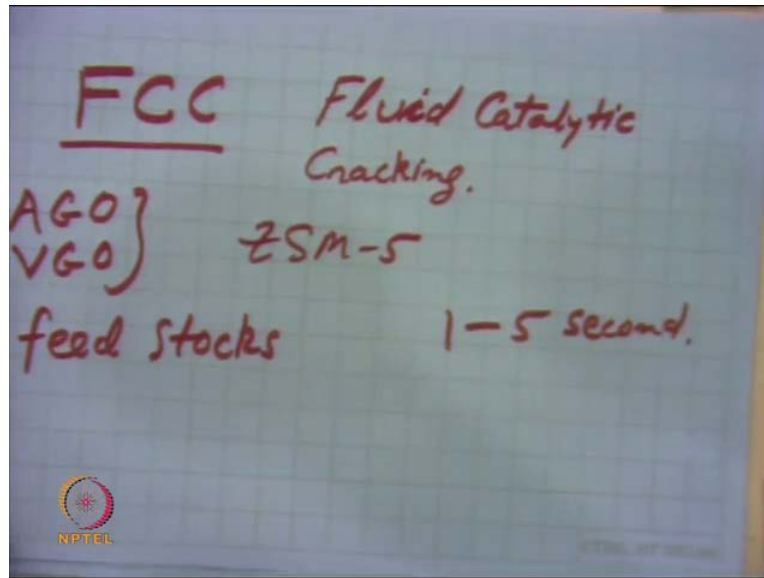 FCC Fluid Catalytic
Cracking.
AGO
VGO } ZSM-5
feed stocks 1-5 second.
NPTEL